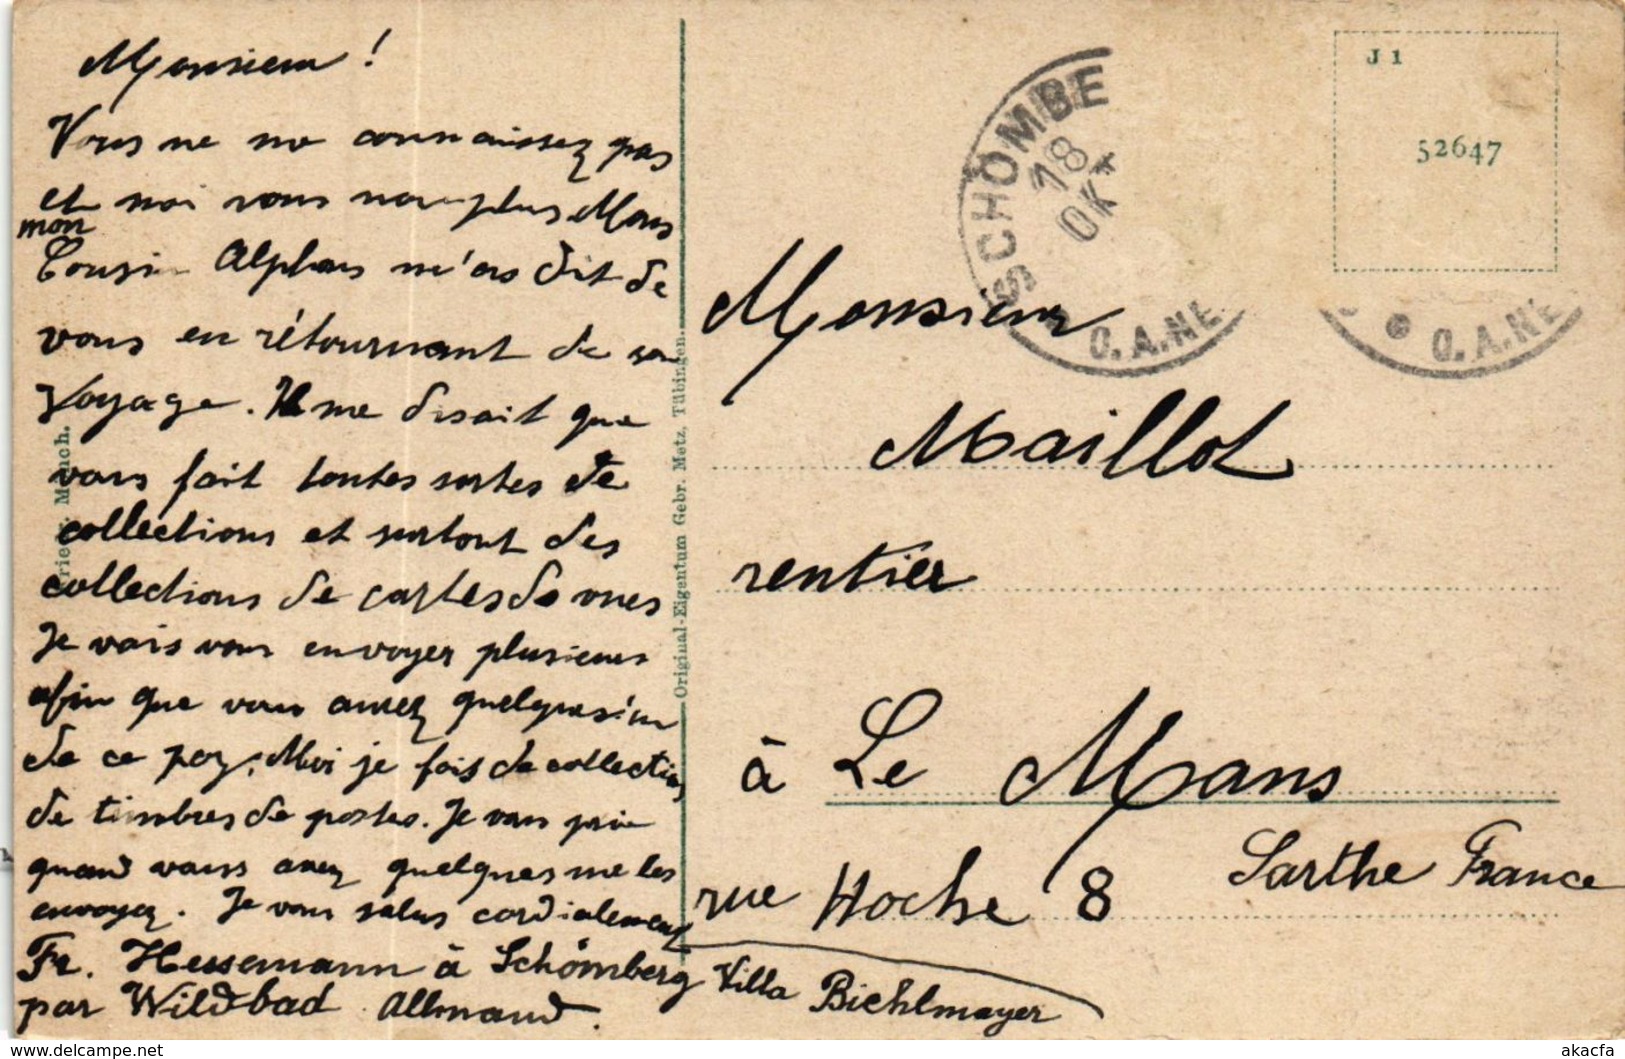 Monsieur !
Vous ne me connaissez pas
et moi vous non plus Mais
mon
Cousin Alphons m'as dit de
vous en rétournant de son
Voyage. Il me disait que
vous fait toutes sortes de
collections et surtout des
collections de cartes de vues
Je vais vous envoyer plusieurs
afin que vous aurez quelques'un
de ce pay. Moi je fais de collection
de timbres de postes. Je vous prie
quand vous avez quelques me les
envoyez. Je vous salus cordialement
Fr. Hessemann à Schömberg Villa Biehlmayer
par Wildbad Allmand.
Original-Eigentum Gebr. Metz, Tübingen.
SCHÖMBE
18
OKT
O.A.NE
O.A.NE
J 1
52647
Monsieur
Maillot
rentier
à Le Mans
Sarthe France
rue Hoche 8
akacfa